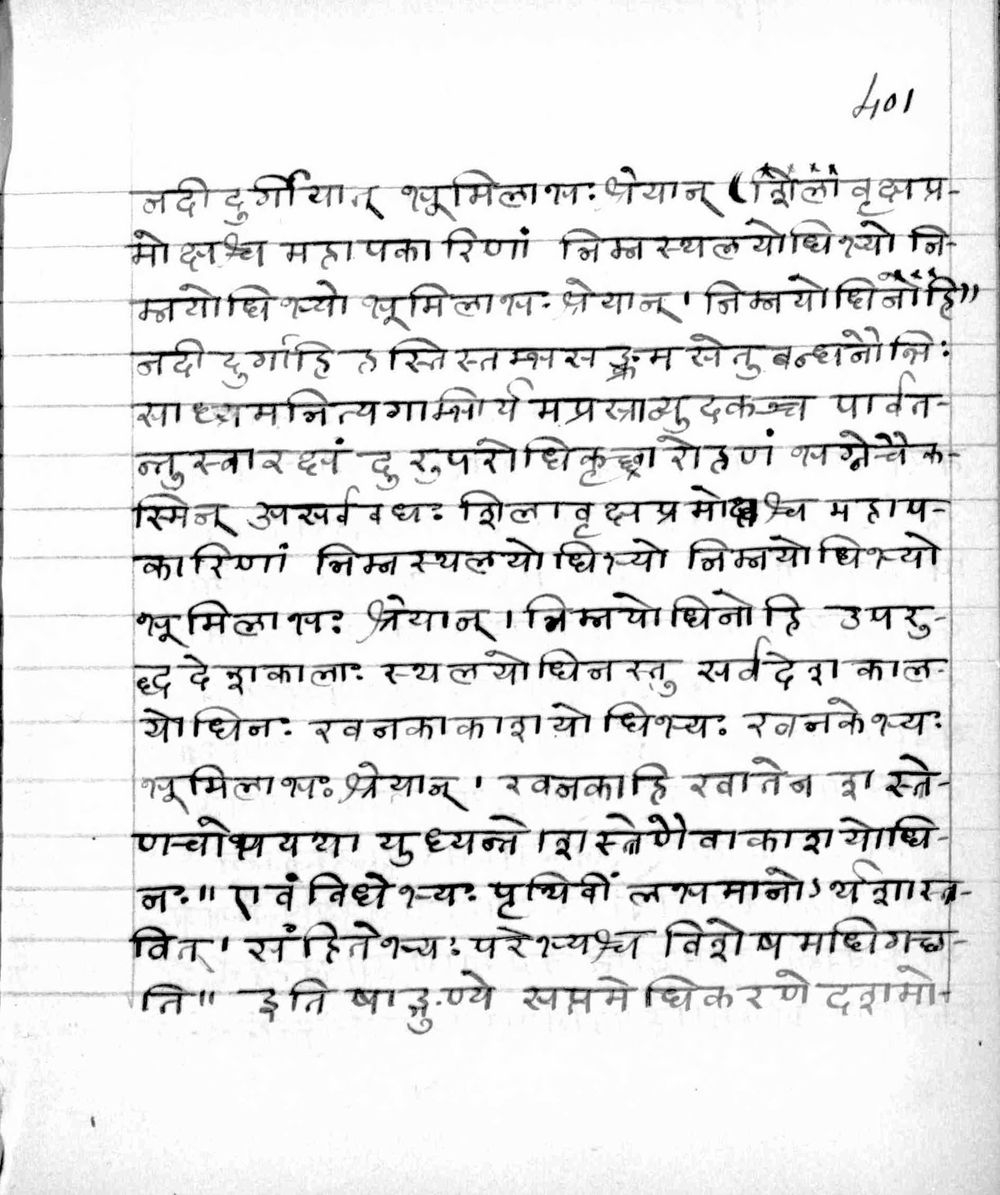 401
नदी दुर्गीयात् भूमिलाभः श्रेयान् (शिला वृक्षप्र-
मोक्षश्च महापकारिणां निम्नस्थलयोधिभ्यो नि-
म्नयोधिभ्यो भूमिलाभः श्रेयान् । निम्नयोधिनोहि"
नदी दुर्गाहि हस्तिस्तम्भसङ्क्रम सेतुबन्धनौभिः
साध्यमनित्यगाम्भीर्य मप्रस्राव्युदकञ्च पार्वत-
न्तु स्वारक्षं दुरुपरोधिकृच्छ्रारोहणं भग्नेचैक-
स्मिन् असर्ववधः शिलावृक्षप्रमोक्षश्च महाप-
कारिणां निम्नस्थलयोधिभ्यो निम्नयोधिभ्यो
भूमिलाभः श्रेयान् । निम्नयोधिनोहि उपरु-
द्ध देशकालाः स्थलयोधिनस्तु सर्वदेशकाल-
योधिनः खनकाकाशयोधिभ्यः खनकेभ्यः
भूमिलाभः श्रेयान् । खनकाहि खातेन शस्त्रे-
णचोभयथा युध्यन्ते । शस्त्रेणैवाकाशयोधि-
नः ॥ एवंविधेभ्यः पृथिवीं लभमानोऽर्थशास्त्र-
वित् । संहितेभ्यः परेभ्यश्च विशेषमधिगच्छ-
ति ॥ इति षाड्गुण्ये सप्तमेधिकरणे दशमो-